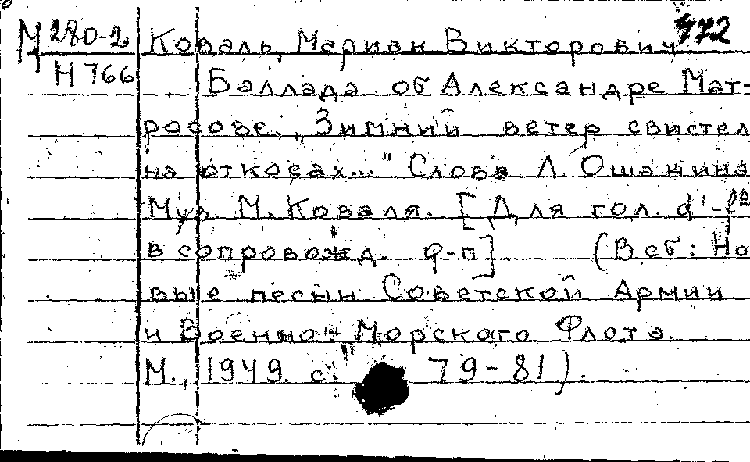 М 280-2 Коваль, Мариан Викторович 472
Н 766 Баллада об Александре Мат-
росове. "Зимний ветер свистел
на откосах..." Слова Л. Ошанина
Муз. М. Коваля. [Для гол. d¹-fa
в сопровожд. ф-п] (В сб: Но
вые песни Советской Армии
и Военно-Морского Флота.
М., 1949 с. 79-81).